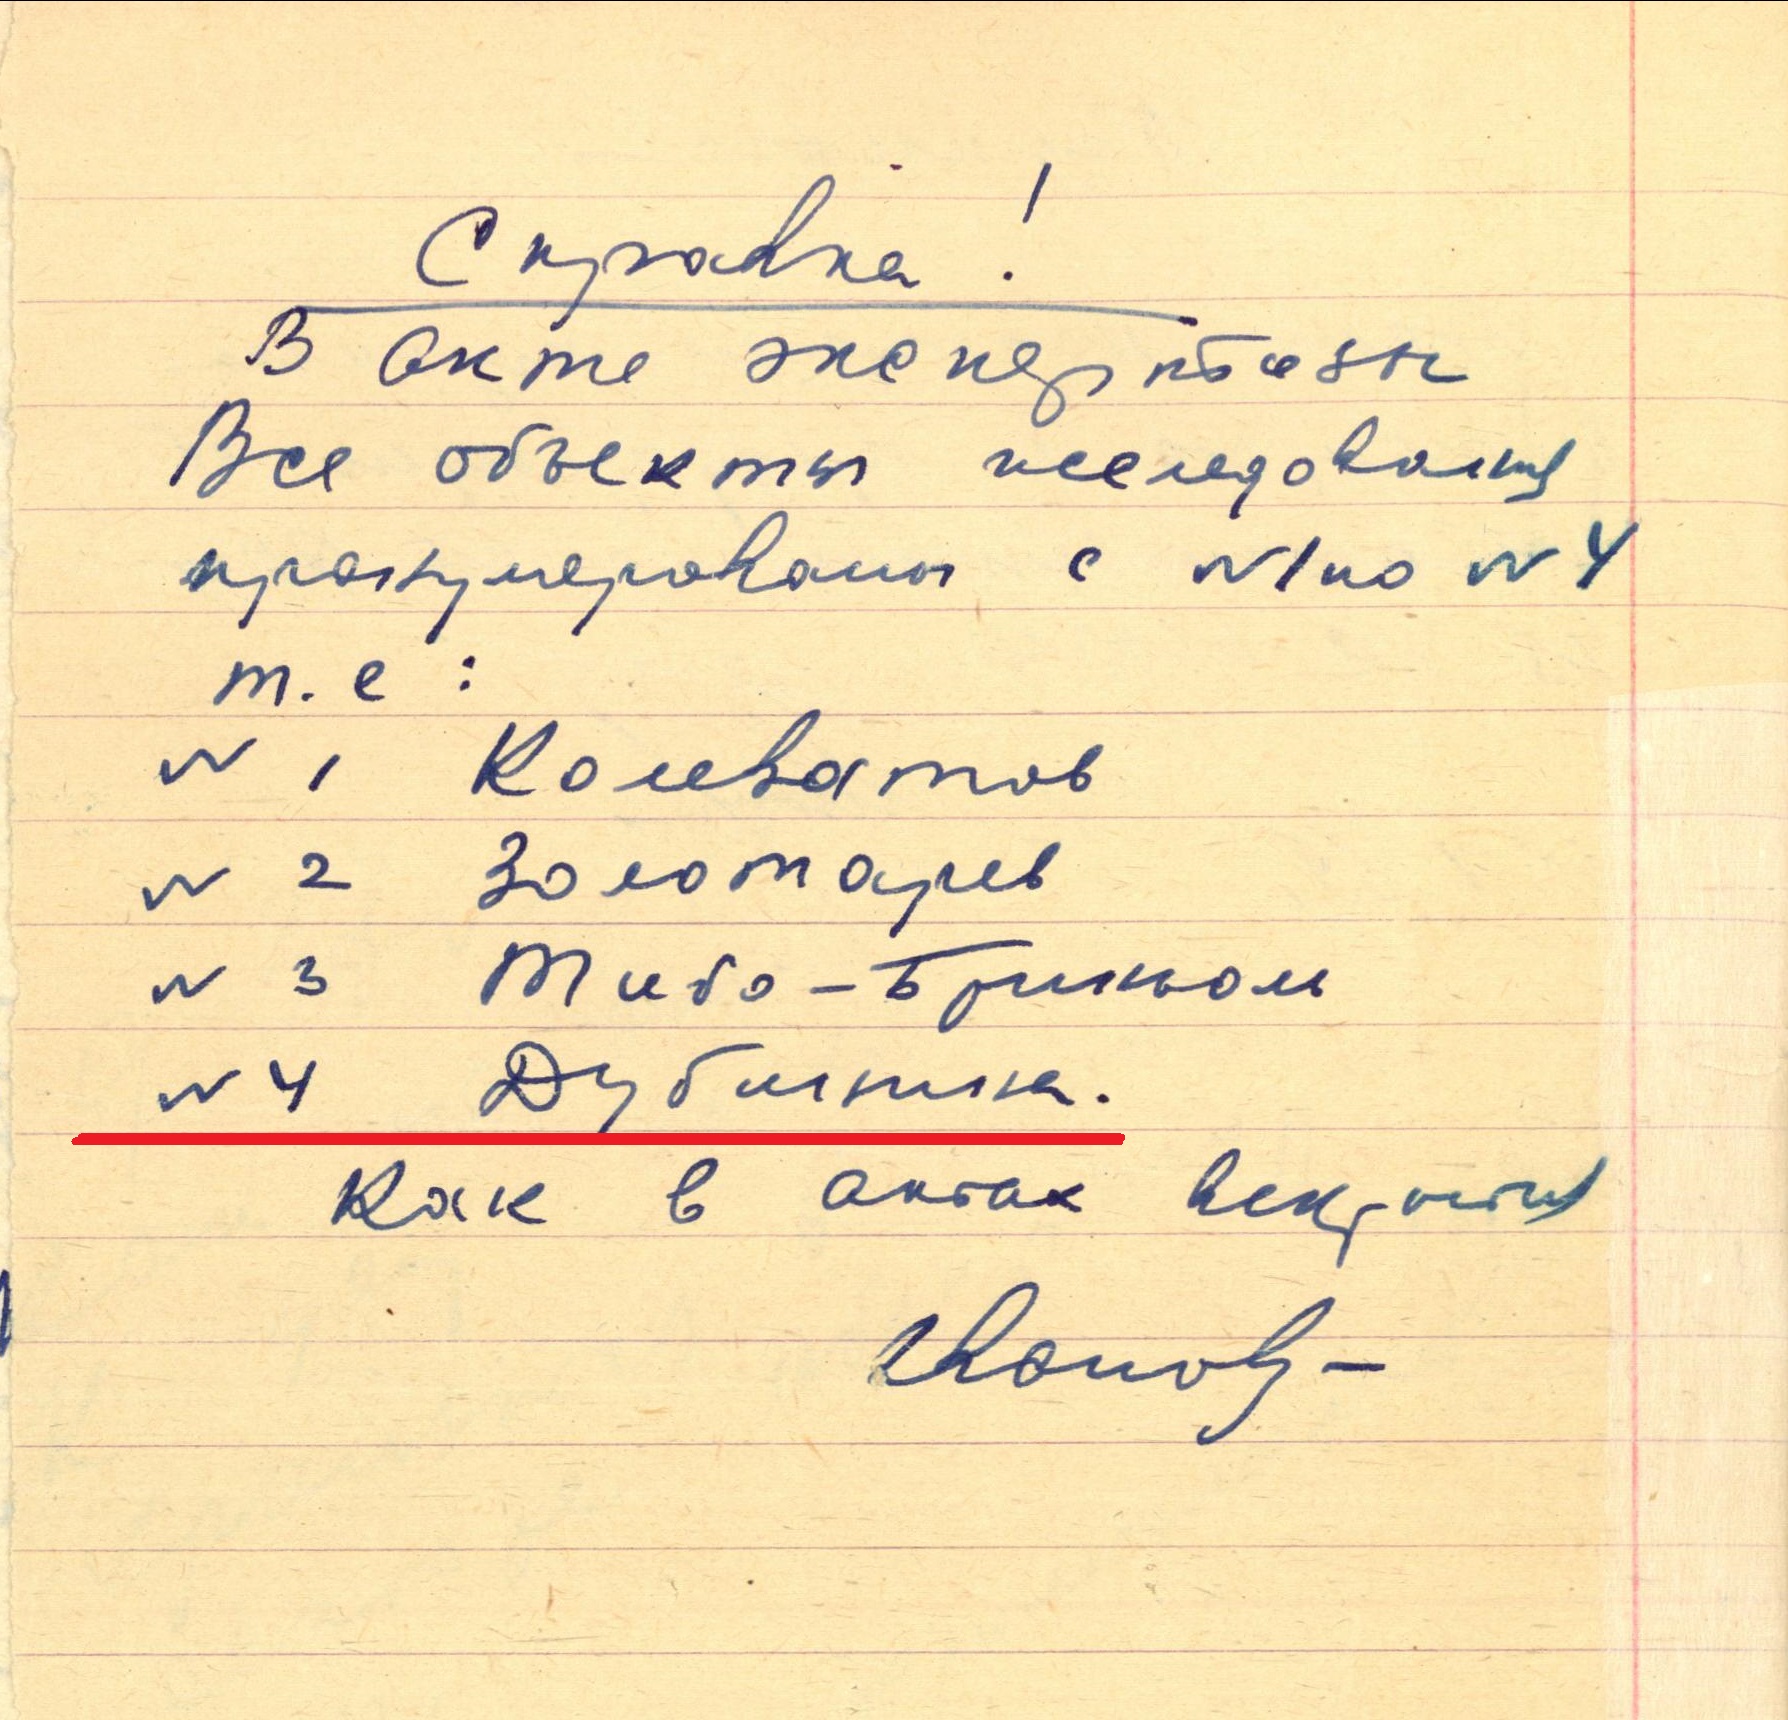 Справка!
В акте экспертизы
Все объекты исследования
пронумерованы с №1 по №4
т.е:
№ 1 Колеватов
№ 2 Золотарев
№ 3 Тибо-Бриньоль
№ 4 Дубинина.
Как в актах вскрытия
Иванов